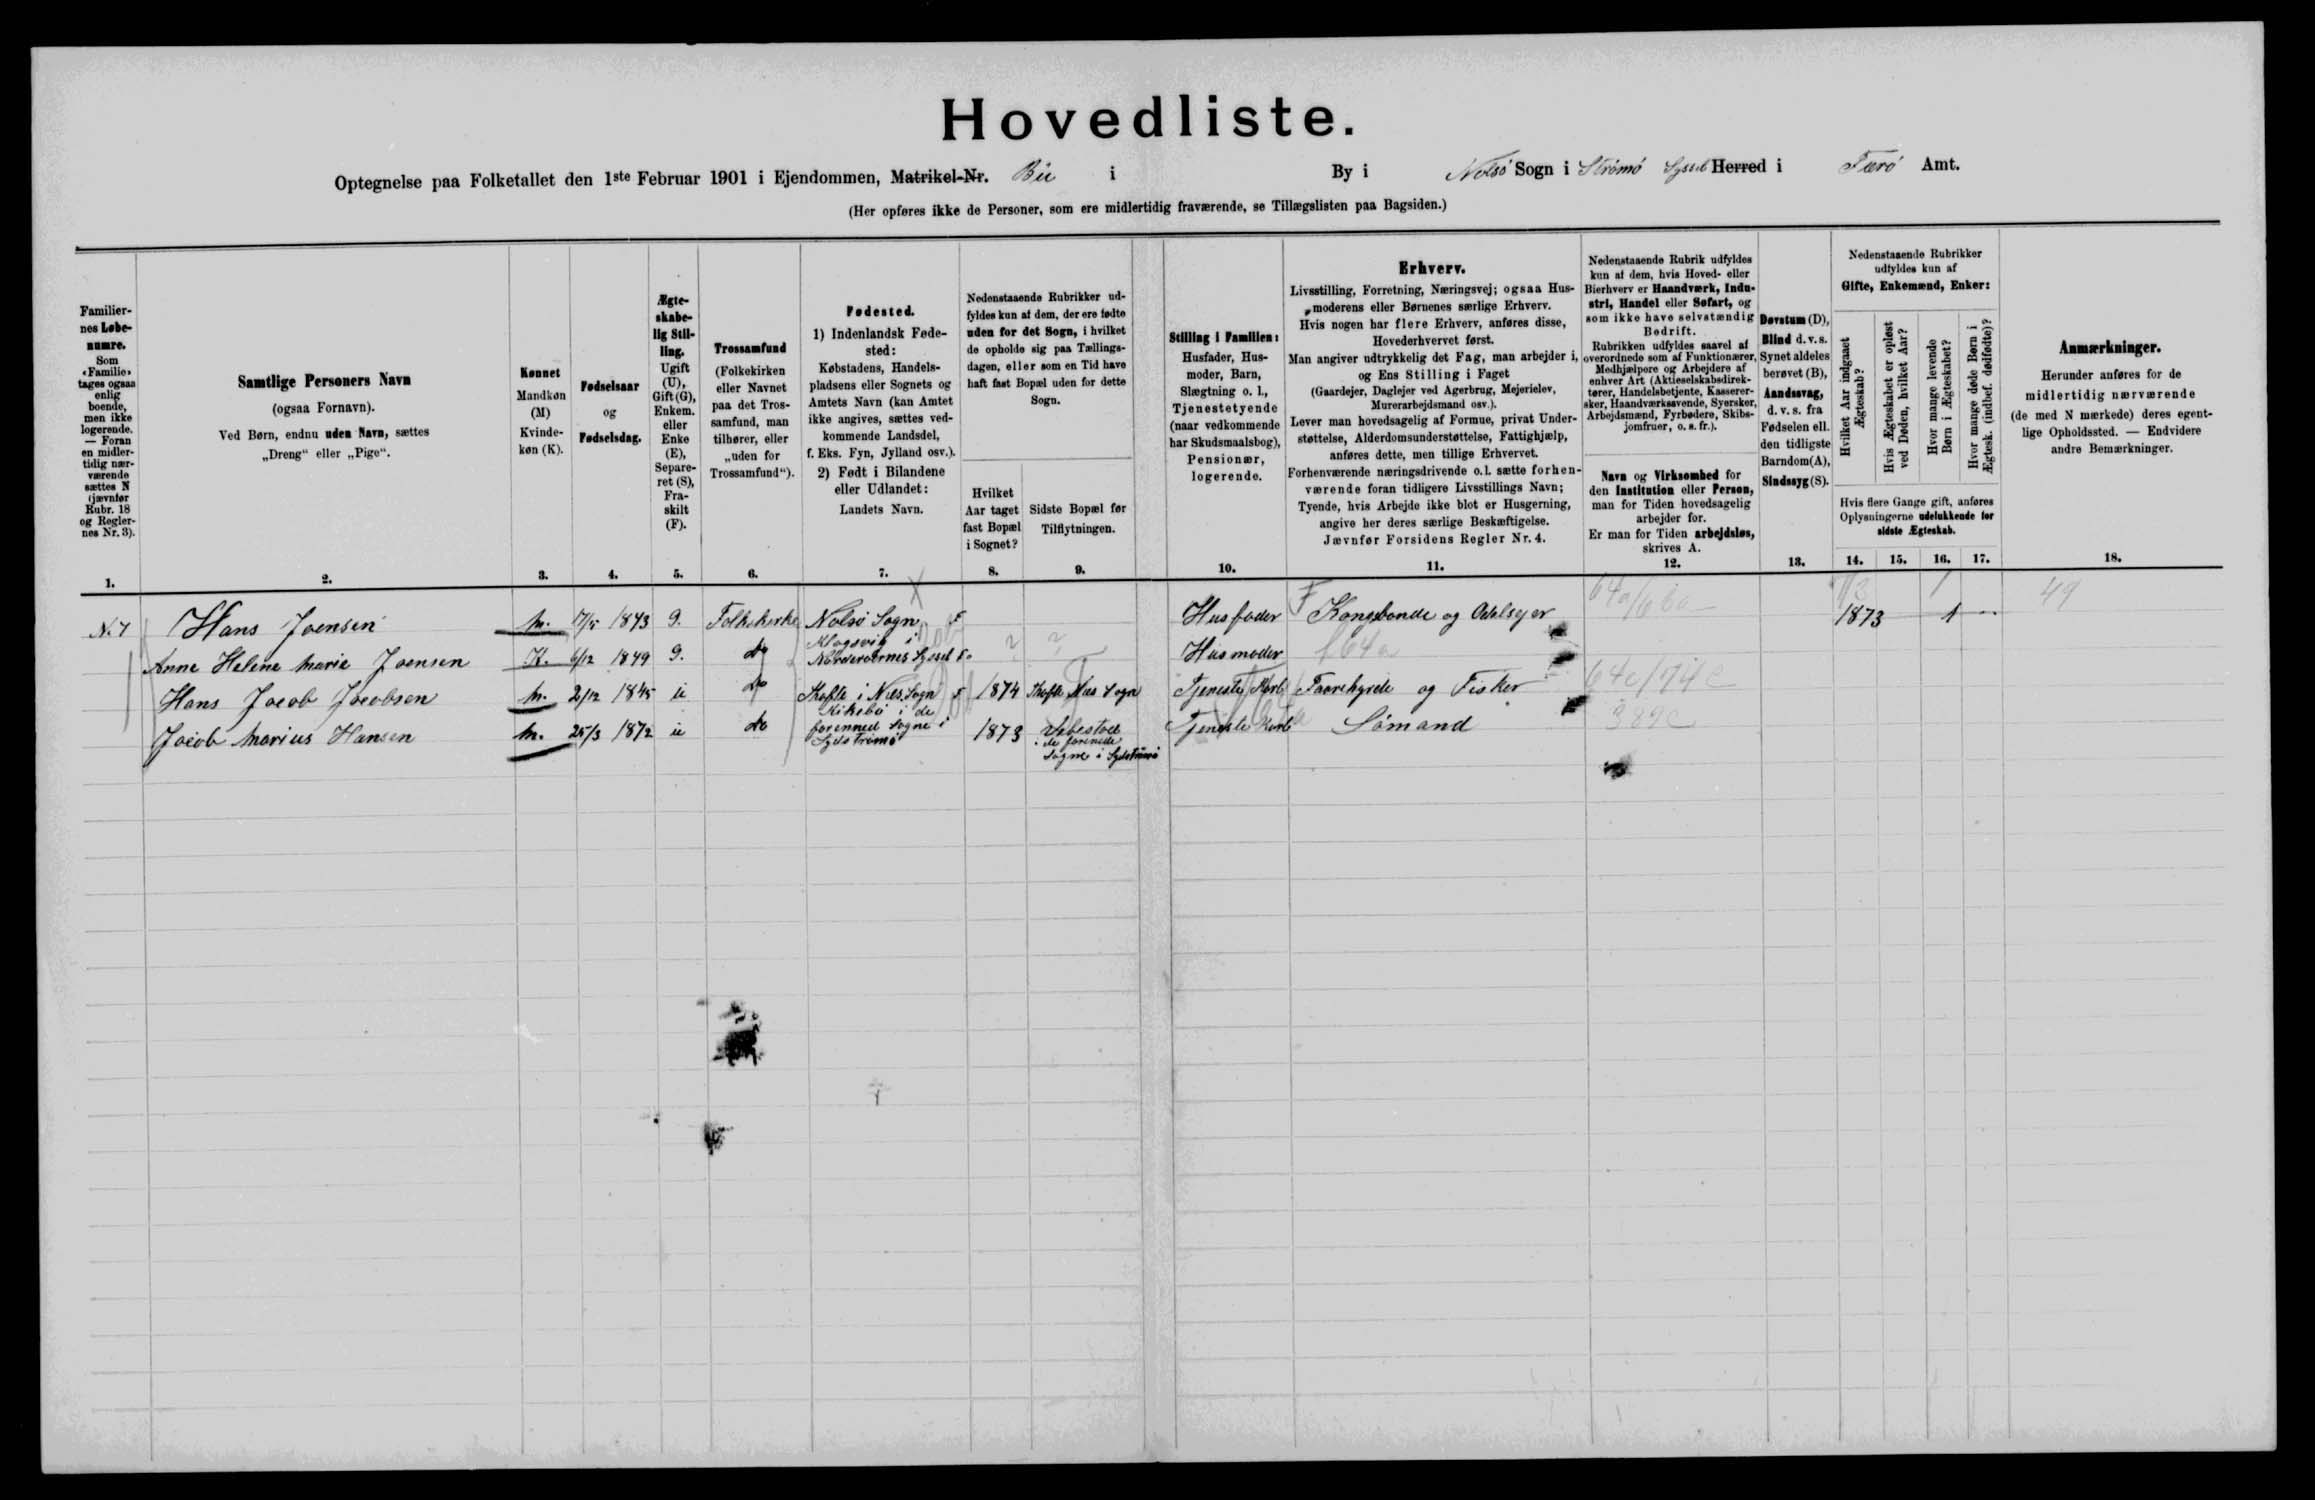 Hovedliste.
Optegnelse paa Folketallet den 1ste Februar 1901 i Ejendommen, Matrikel-Nr. Bü i By i Nolsö Sogn i Strömö Syssel Herred i Færö Amt.
(Her opføres ikke de Personer, som ere midlertidig fraværende, se Tillægslisten paa Bagsiden.)
Familier-
nes Løbe-
numre.
Som
«Familie»
tages ogsaa
enlig
boende,
men ikke
logerende.
— Foran
en midler-
tidig nær-
værende
sættes N
(jævnfør
Rubr. 18
og Regler-
nes Nr. 3).
1.
Samtlige Personers Navn
(ogsaa Fornavn).
Ved Børn, endnu uden Navn, sættes
„Dreng“ eller „Pige“.
2.
Kønnet
Mandkøn
(M)
Kvinde-
køn (K).
3.
Fødselsaar
og
Fødselsdag.
4.
Ægte-
skabe-
lig Stil-
ling.
Ugift
(U),
Gift (G),
Enkem.
eller
Enke
(E),
Separe-
ret (S),
Fra-
skilt
(F).
5.
Trossamfund
(Folkekirken
eller Navnet
paa det Tros-
samfund, man
tilhører, eller
„uden for
Trossamfund“).
6.
Fødested.
1) Indenlandsk Føde-
sted:
Købstadens, Handels-
pladsens eller Sognets og
Amtets Navn (kan Amtet
ikke angives, sættes ved-
kommende Landsdel,
f. Eks. Fyn, Jylland osv.).
2) Født i Bilandene
eller Udlandet:
Landets Navn.
7.
Nedenstaaende Rubrikker ud-
fyldes kun af dem, der ere fødte
uden for det Sogn, i hvilket
de opholde sig paa Tællings-
dagen, eller som en Tid have
haft fast Bopæl uden for dette
Sogn.
Hvilket
Aar taget
fast Bopæl
i Sognet?
8.
Sidste Bopæl før
Tilflytningen.
9.
Stilling i Familien:
Husfader, Hus-
moder, Barn,
Slægtning o. l.,
Tjenestetyende
(naar vedkommende
har Skudsmaalsbog),
Pensionær,
logerende.
10.
Erhverv.
Livsstilling, Forretning, Næringsvej; ogsaa Hus-
moderens eller Børnenes særlige Erhverv.
Hvis nogen har flere Erhverv, anføres disse,
Hovederhvervet først.
Man angiver udtrykkelig det Fag, man arbejder i,
og Ens Stilling i Faget
(Gaardejer, Daglejer ved Agerbrug, Mejerielev,
Murerarbejdsmand osv.).
Lever man hovedsagelig af Formue, privat Under-
støttelse, Alderdomsunderstøttelse, Fattighjælp,
anføres dette, men tillige Erhvervet.
Forhenværende næringsdrivende o.l. sætte forhen-
værende foran tidligere Livsstillings Navn;
Tyende, hvis Arbejde ikke blot er Husgerning,
angive her deres særlige Beskæftigelse.
Jævnfør Forsidens Regler Nr. 4.
11.
Nedenstaaende Rubrik udfyldes
kun af dem, hvis Hoved- eller
Bierhverv er Haandværk, Indu-
stri, Handel eller Søfart, og
som ikke have selvstændig
Bedrift.
Rubrikken udfyldes saavel af
overordnede som af Funktionærer,
Medhjælpere og Arbejdere af
enhver Art (Aktieselskabsdirek-
tører, Handelsbetjente, Kasserer-
sker, Haandværkssvende, Syersker,
Arbejdsmænd, Fyrbødere, Skibs-
jomfruer, o. s. fr.).
Navn og Virksomhed for
den Institution eller Person,
man for Tiden hovedsagelig
arbejder for.
Er man for Tiden arbejdsløs,
skrives A.
12.
Døvstum (D),
Blind d. v. s.
Synet aldeles
berøvet (B),
Aandssvag,
d. v. s. fra
Fødselen ell.
den tidligste
Barndom (A),
Sindssyg (S).
13.
Nedenstaaende Rubrikker
udfyldes kun af
Gifte, Enkemænd, Enker:
Hvilket Aar indgaaet
Ægteskab?
Hvis Ægteskabet er opløst
ved Døden, hvilket Aar?
Hvor mange levende
Børn i Ægteskabet?
Hvor mange døde Børn i
Ægtesk. (indbef. dødfødte)?
Hvis flere Gange gift, anføres
Oplysningerne udelukkende for
sidste Ægteskab.
14. 15. 16. 17.
Anmærkninger.
Herunder anføres for de
midlertidig nærværende
(de med N mærkede) deres egent-
lige Opholdssted. — Endvidere
andre Bemærkninger.
18.
Hans Joensen M. 1843 G. Folkekirke Nolsö Sogn Husfader Kongsbonde og Odelsejer 1873 1 49
Anne Helene Marie Joensen K. 6/12 1849 G. do Klagsvig i Norderöernes Syssel ? ? Husmoder 64a
Hans Jacob Jacobsen M. 2/12 1845 U do 1874 Tjeneste Karl Faarehyrde og Fisker 64c/74c
Jacob Marius Hansen M. 25/3 1872 U do Kikebö i de forenned Sogne i Sydströmö 1873 Velbestad i de forenede Sogne i Sydströmö Tjeneste Karl Sömand 389c